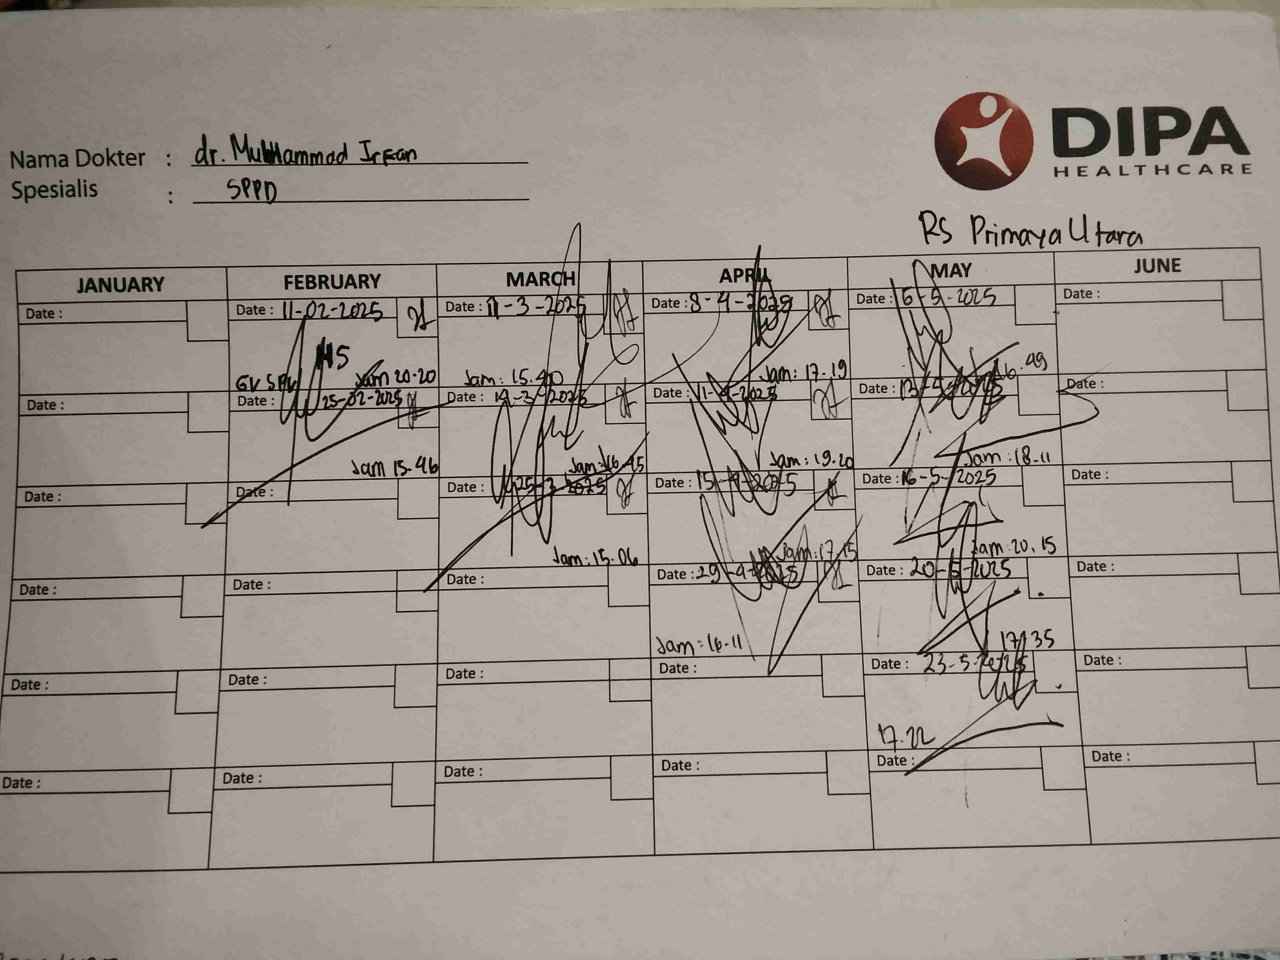 DIPA
HEALTHCARE
Nama Dokter : dr. Muhammad Irfan
Spesialis : SPPD
RS Primaya Utara
JANUARY FEBRUARY MARCH APRIL MAY JUNE
Date : Date : 11-02-2025 Date : 11-3-2025 Date : 8-4-2025 Date : 6-5-2025 Date :
Jam 20.20 Jam : 15.40 Jam : 17.19
Date : Date : 25-02-2025 Date : Date : 11-4-2025 Date : 13-5-2025 Date :
Jam 15.46 Jam : 16.45 Jam : 19.20 Jam : 18.11
Date : Date : Date : 25-3-2025 Date : 15-4-2025 Date : 16-5-2025 Date :
Jam : 15.06 Jam : 17.15 Jam : 20.15
Date : Date : Date : Date : 29-4-2025 Date : 20-5-2025 Date :
Jam : 16-11 17.35
Date : Date : Date : Date : Date : 23-5-2025 Date :
17.22
Date : Date : Date : Date : Date : Date :